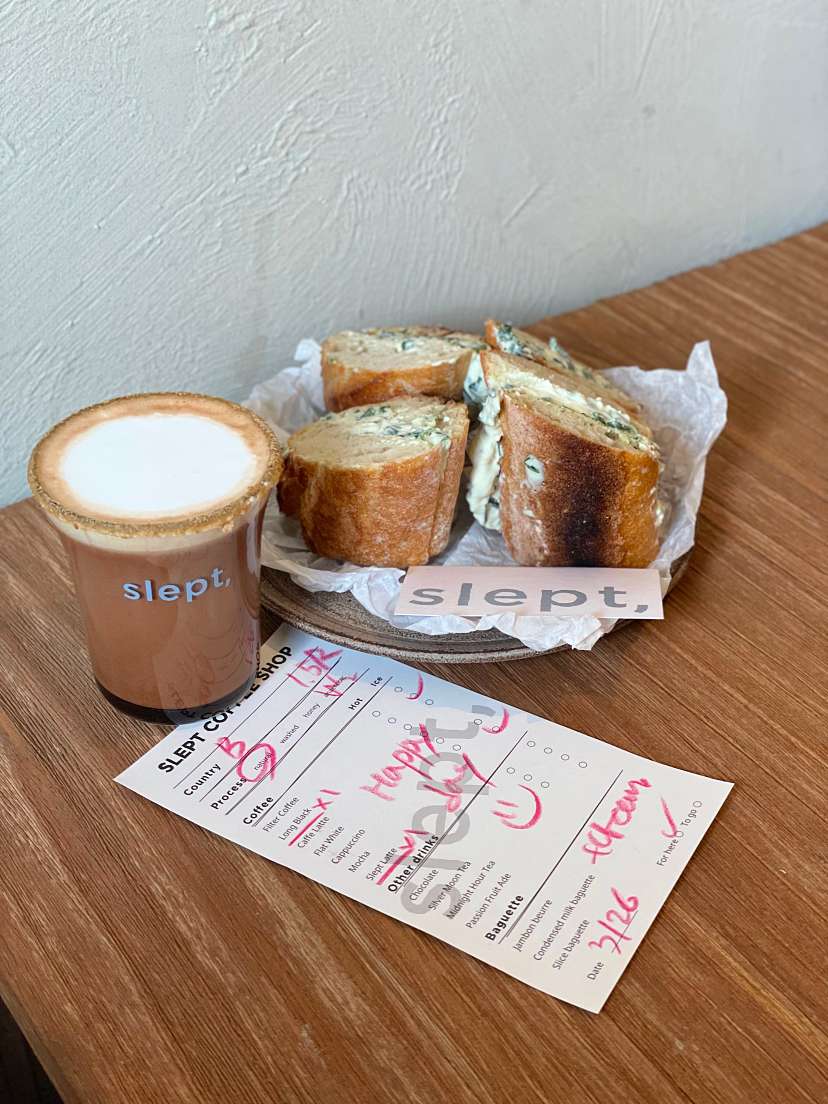 slept,
slept,
SLEPT COFFEE SHOP
Country B
Process natural washed honey
Coffee Hot Ice
Filter Coffee
Long Black x1
Caffe Latte
Flat White
Cappuccino
Mocha
Slept Latte x1
Other drinks
Chocolate
Silver Moon Tea
Midnight Hour Tea
Passion Fruit Ade
Baguette
Jambon beurre
Condensed milk baguette
Slice baguette
Date 3/26
For here To go
Happy
day
slept,